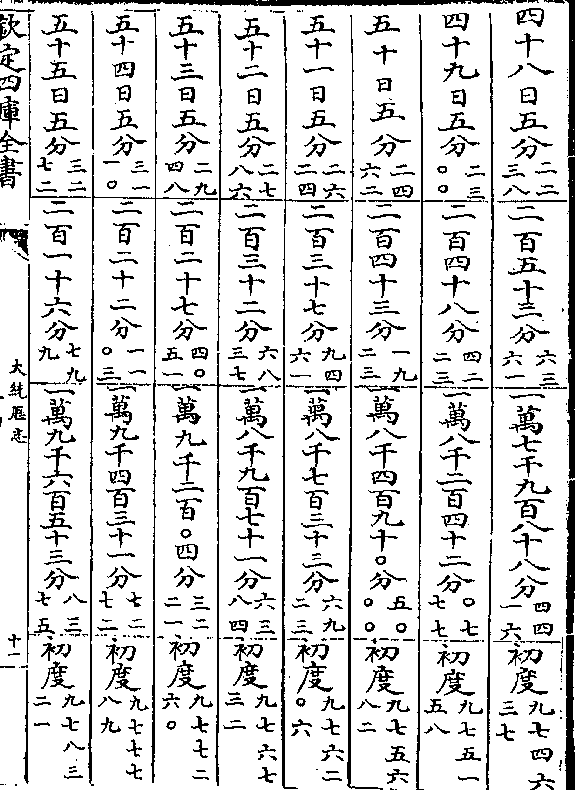 四十八日五分二二三八 二百五十三分六三六一 一萬七千九百八十八分四四一六 初度九七四六三七
四十九日五分二三〇〇 二百四十八分四二二三 一萬八千二百四十二分〇七七七 初度九七五一五八
五十日五分二四六二 二百四十三分一九二三 一萬八千四百九十〇分五〇〇〇 初度九七五六八二
五十一日五分二六二四 二百三十七分九四六一 一萬八千七百三十三分六九二三 初度九七六二〇六
五十二日五分二七八六 二百三十二分六八三七 一萬八千九百七十一分六三八四 初度九七六七三二
五十三日五分二九四八 二百二十七分四〇五一 一萬九千二百〇四分三二二一 初度九七七二六〇
五十四日五分三一一〇 二百二十二分一一〇三 一萬九千四百三十一分七二七二 初度九七七七八九
五十五日五分三二七二 二百一十六分七九九 一萬九千六百五十三分八三七五 初度九七八三二一
欽定四庫全書 大統歷志 十一